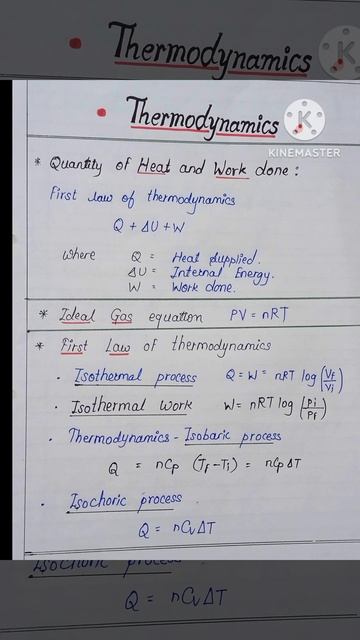 Thermodynamics
Thermodynamics
KINEMASTER
* Quantity of Heat and Work done :
First law of thermodynamics
Q + ΔU + W
where Q = Heat supplied.
ΔU = Internal Energy.
W = Work done.
* Ideal Gas equation PV = nRT
* First Law of thermodynamics
· Isothermal process Q = W = nRT log (Vf/Vi)
· Isothermal work W = nRT log (Pi/Pf)
· Thermodynamics - Isobaric process
Q = nCp (Tf - Ti) = nCp ΔT
· Isochoric process
Q = nCv ΔT
Isochoric process
Q = nCv ΔT